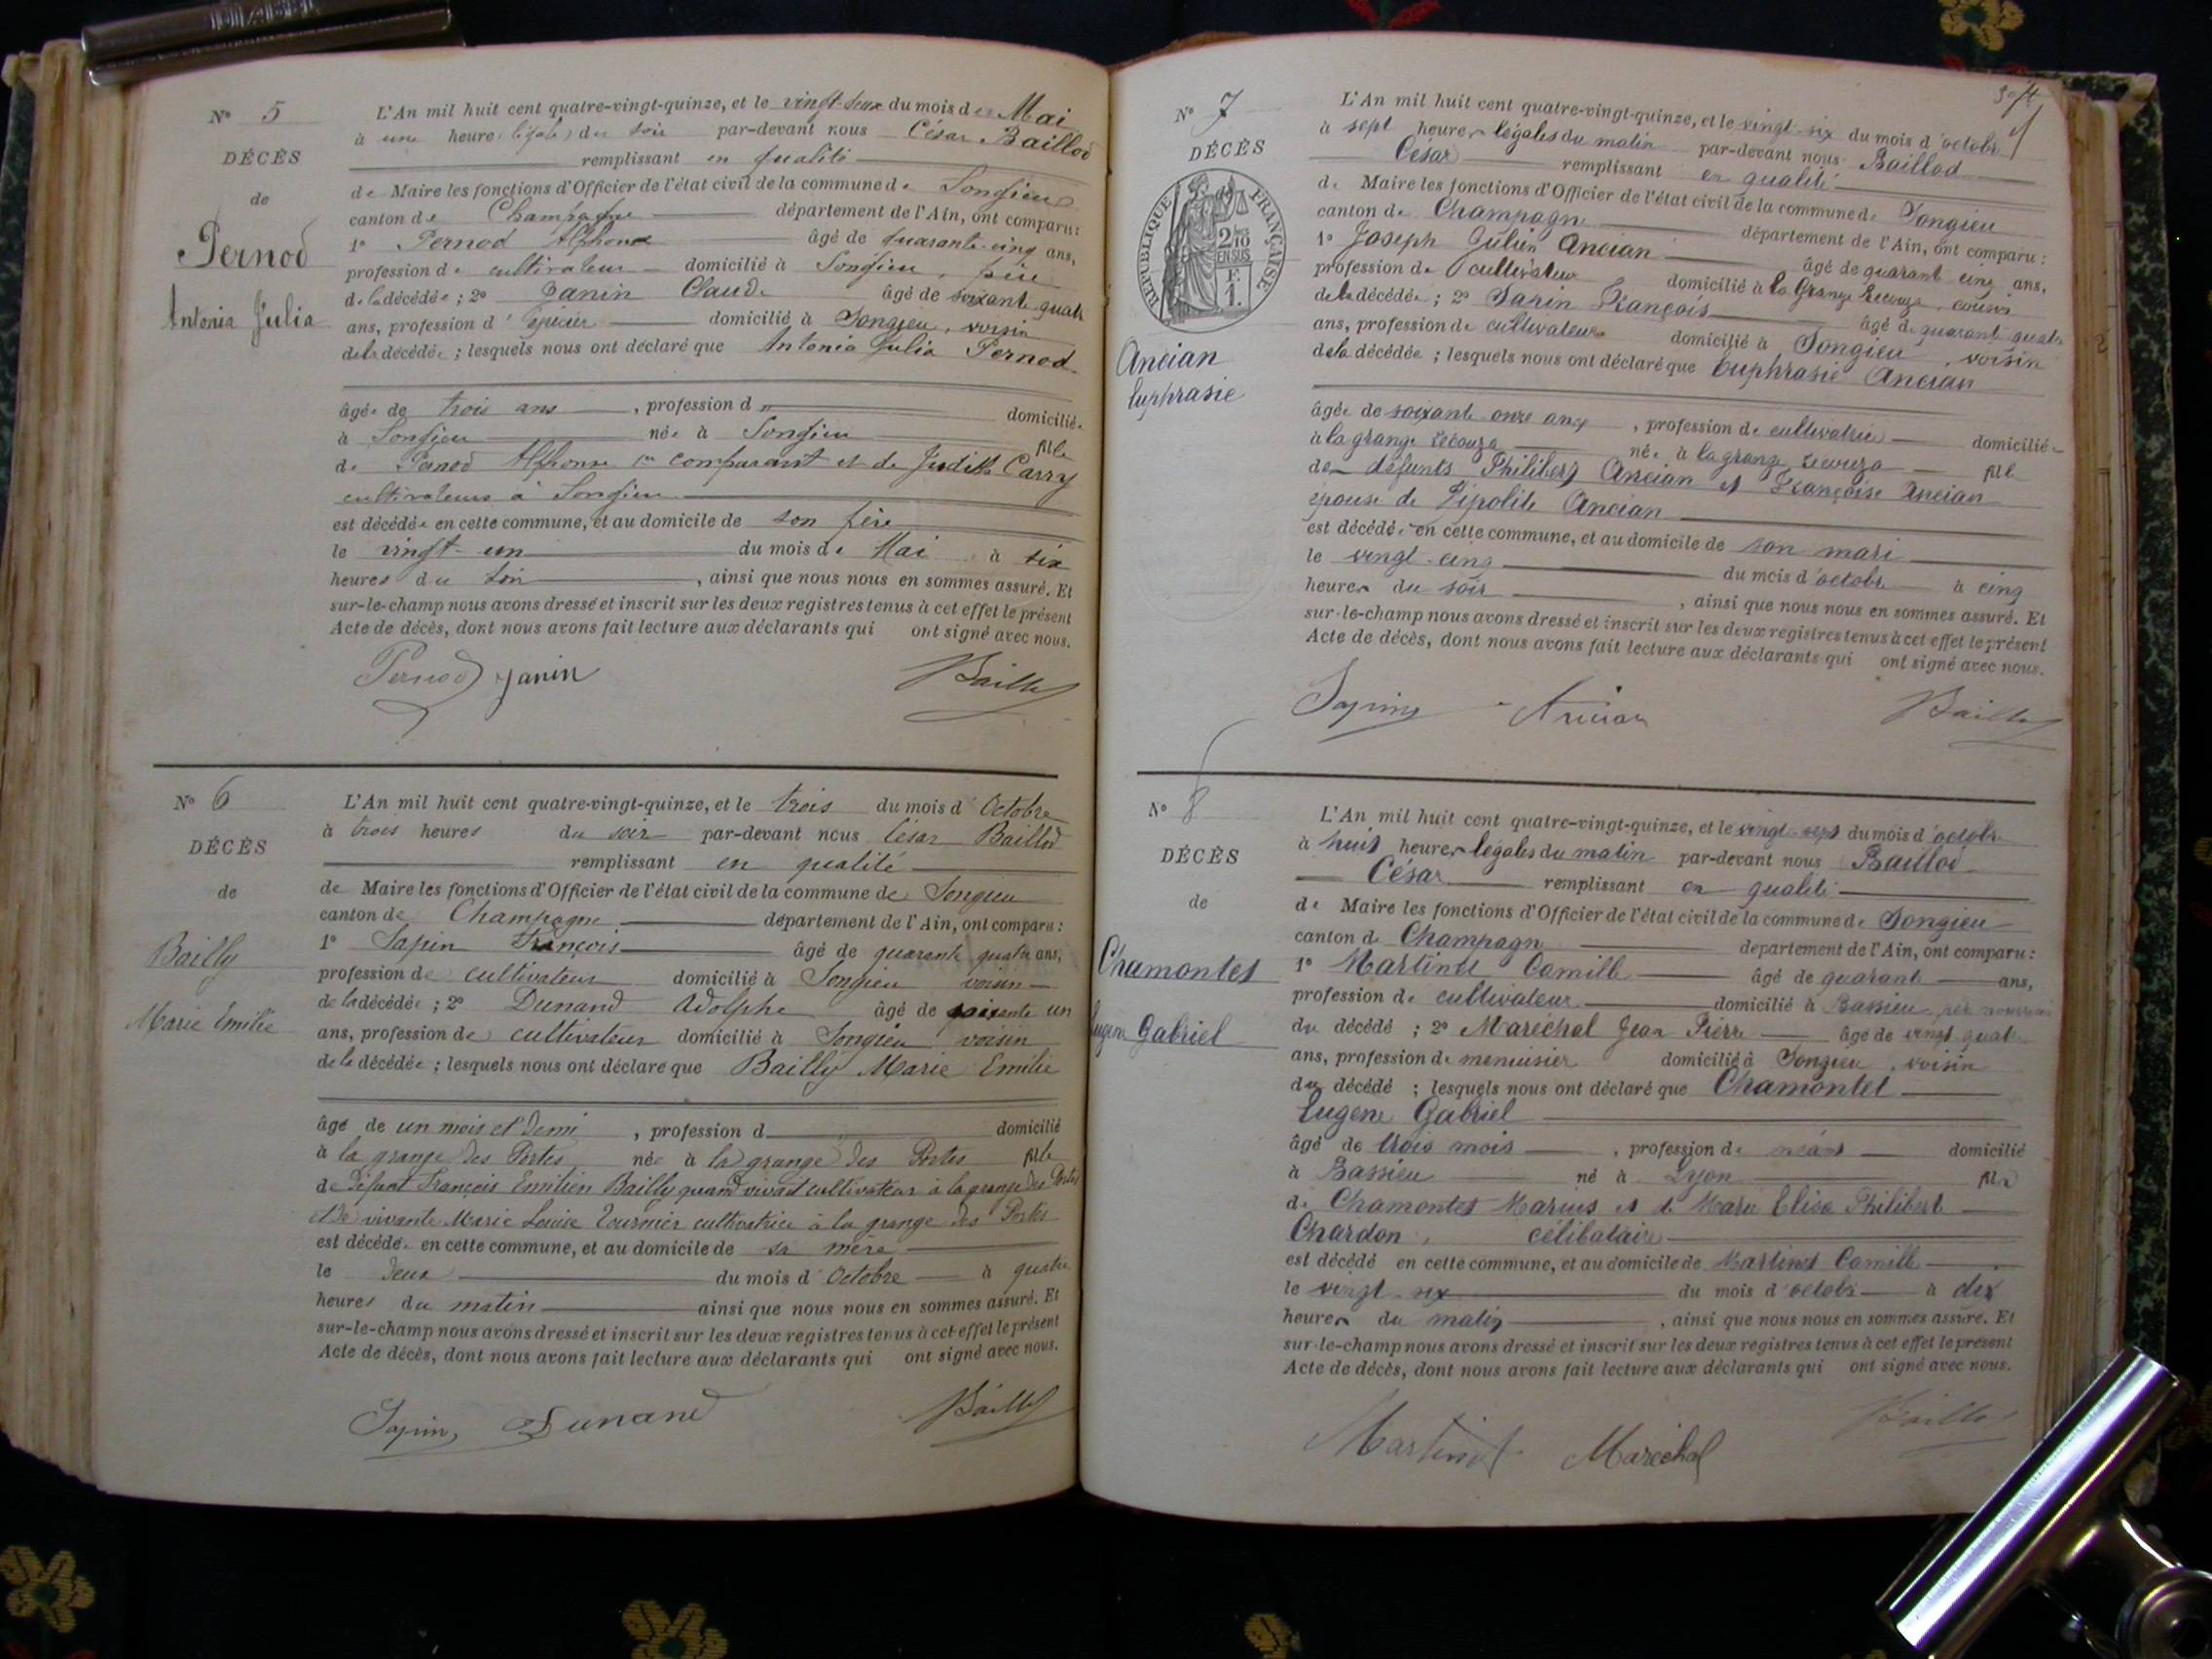 N° 5
DÉCÈS
de
Pernod
Antonia Julia
L'An mil huit cent quatre-vingt-quinze, et le vingt-deux du mois de Mai
à une heure (légale) du soir par-devant nous César Baillod
remplissant en qualité
de Maire les fonctions d'Officier de l'état civil de la commune de Songieu
canton de Champagne département de l'Ain, ont comparu:
1° Pernod Alphonse âgé de quarante-cinq ans,
profession de cultivateur domicilié à Songieu, père
de la décédée; 2° Janin Claude âgé de soixante quatre
ans, profession d'épicier domicilié à Songieu, voisin
de la décédée; lesquels nous ont déclaré que Antonia Julia Pernod
âgée de trois ans, profession d domiciliée
à Songieu née à Songieu fille
de Pernod Alphonse 1er comparant et de Judith Carry
cultivateurs à Songieu
est décédée en cette commune, et au domicile de son père
le vingt-un du mois de Mai à six
heures du soir, ainsi que nous nous en sommes assuré. Et
sur-le-champ nous avons dressé et inscrit sur les deux registres tenus à cet effet le présent
Acte de décès, dont nous avons fait lecture aux déclarants qui ont signé avec nous.
Pernod Janin Baillod
N° 6
DÉCÈS
de
Bailly
Marie Emilie
L'An mil huit cent quatre-vingt-quinze, et le trois du mois d'Octobre
à trois heures du soir par-devant nous César Baillod
remplissant en qualité
de Maire les fonctions d'Officier de l'état civil de la commune de Songieu
canton de Champagne département de l'Ain, ont comparu:
1° Sapin François âgé de quarante quatre ans,
profession de cultivateur domicilié à Songieu voisin
de la décédée; 2° Dunand Adolphe âgé de soixante un
ans, profession de cultivateur domicilié à Songieu voisin
de la décédée; lesquels nous ont déclaré que Bailly Marie Emilie
âgé de un mois et demi, profession d domicilié
à la grange des Portes née à la grange des Portes fille
de défunt François Emilien Bailly quand vivait cultivateur à la grange des Portes
et de vivante Marie Louise Tournier cultivatrice à la grange des Portes
est décédée en cette commune, et au domicile de sa mère
le deux du mois d'Octobre à quatre
heures du matin ainsi que nous nous en sommes assuré. Et
sur-le-champ nous avons dressé et inscrit sur les deux registres tenus à cet effet le présent
Acte de décès, dont nous avons fait lecture aux déclarants qui ont signé avec nous.
Sapin Dunand Baillod
N° 7
DÉCÈS
de
RÉPUBLIQUE FRANÇAISE
2/10 EN SUS
F. 1.
Ancian
Euphrasie
L'An mil huit cent quatre-vingt-quinze, et le vingt-six du mois d'octobre
à sept heures légales du matin par-devant nous Baillod
César remplissant en qualité
de Maire les fonctions d'Officier de l'état civil de la commune de Songieu
canton de Champagne département de l'Ain, ont comparu:
1° Joseph Julien Ancian âgé de quarante cinq ans,
profession de cultivateur domicilié à la Grange cousin
de la décédée; 2° Sapin François âgé de quarante quatre
ans, profession de cultivateur domicilié à Songieu, voisin
de la décédée; lesquels nous ont déclaré que Euphrasie Ancian
âgée de soixante onze ans, profession de cultivatrice domiciliée
à la grange née à la grange fille
de défunts Philibert Ancian et Françoise Ancian
épouse de Hipolite Ancian
est décédée en cette commune, et au domicile de son mari
le vingt-cinq du mois d'octobre à cinq
heures du soir, ainsi que nous nous en sommes assuré. Et
sur-le-champ nous avons dressé et inscrit sur les deux registres tenus à cet effet le présent
Acte de décès, dont nous avons fait lecture aux déclarants qui ont signé avec nous.
Sapin Ancian Baillod
N° 8
DÉCÈS
de
Chamontet
Eugène Gabriel
L'An mil huit cent quatre-vingt-quinze, et le vingt-sept du mois d'octobre
à huit heures légales du matin par-devant nous Baillod
César remplissant en qualité
de Maire les fonctions d'Officier de l'état civil de la commune de Songieu
canton de Champagne département de l'Ain, ont comparu:
1° Martinet Camille âgé de quarante ans,
profession de cultivateur domicilié à Bassieu, père nourricier
du décédé; 2° Maréchal Jean Pierre âgé de vingt quatre
ans, profession de menuisier domicilié à Songieu, voisin
du décédé; lesquels nous ont déclaré que Chamontet
Eugène Gabriel
âgé de trois mois, profession de néant domicilié
à Bassieu né à Lyon fils
de Chamontet Marius et de Marie Elisa Philibert
Chardon, célibataire
est décédé en cette commune, et au domicile de Martinet Camille
le vingt-six du mois d'octobre à dix
heures du matin, ainsi que nous nous en sommes assuré. Et
sur-le-champ nous avons dressé et inscrit sur les deux registres tenus à cet effet le présent
Acte de décès, dont nous avons fait lecture aux déclarants qui ont signé avec nous.
Martinet Maréchal Baillod